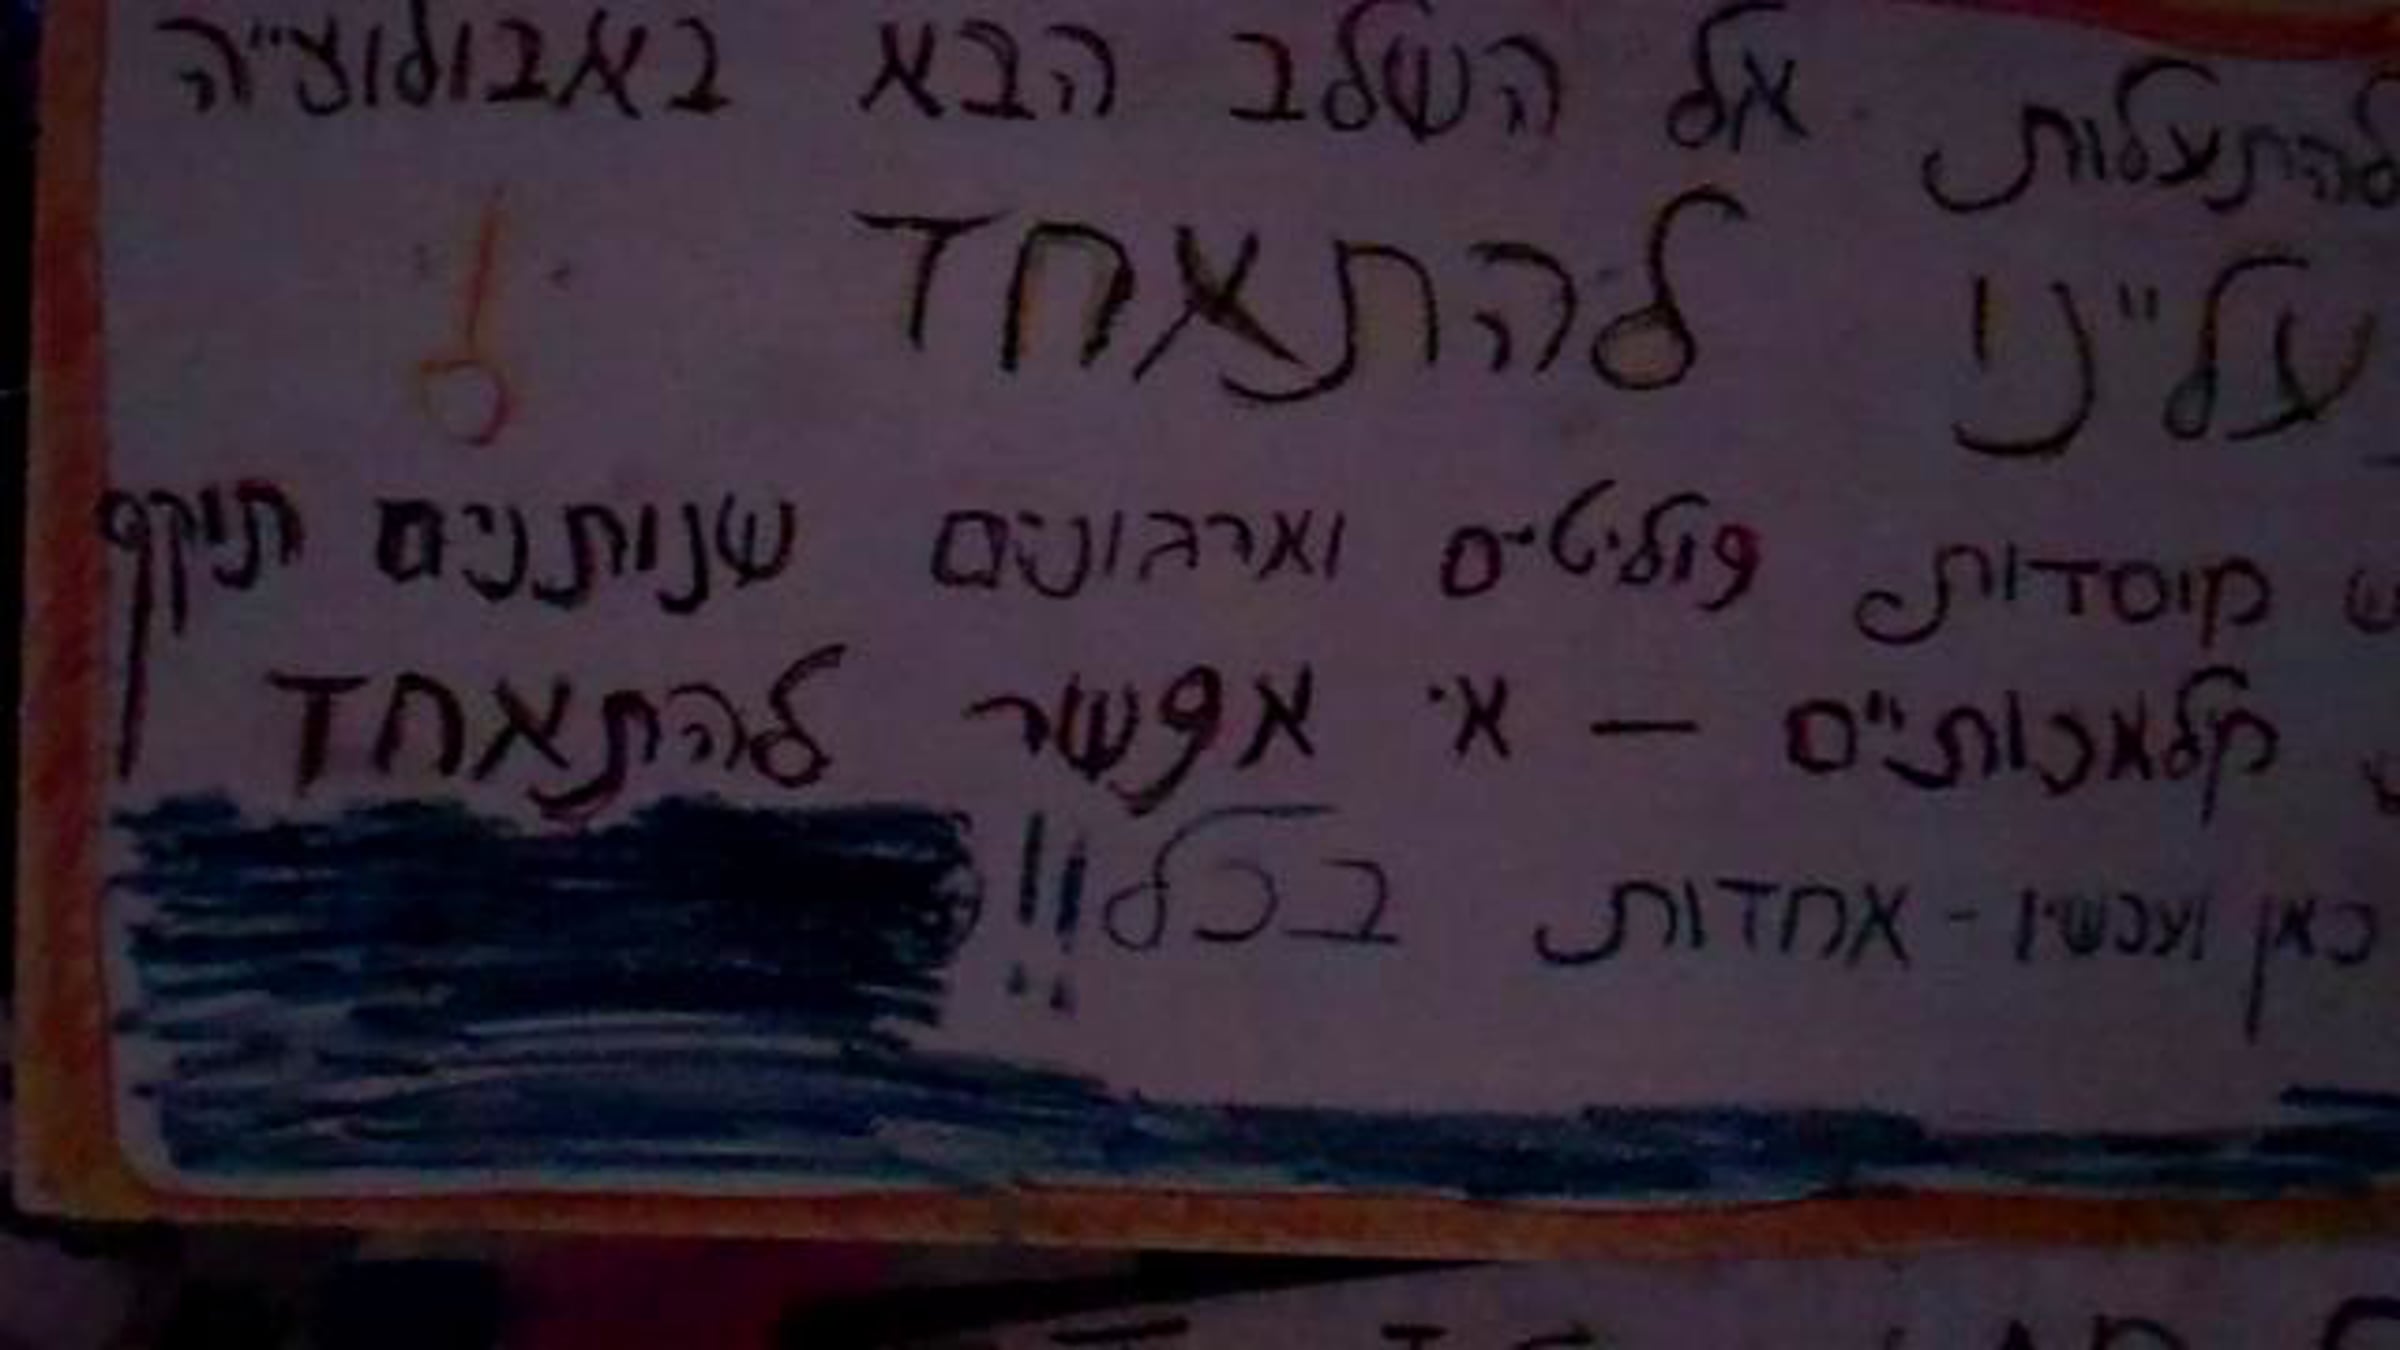 להתעלות אל השלב הבא באבולוצייה
עלינו להתאחד!
מוסדות פוליטים וארגונים שנותנים תוקף
מלאכותיים — אי אפשר להתאחד
כאן ועכשיו - אחדות בכל!!